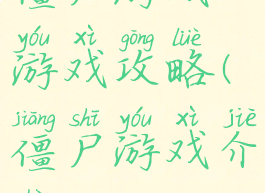 yóu xì gōng lüè
游戏攻略(
jiāng shī yóu xì jiè
僵尸游戏介